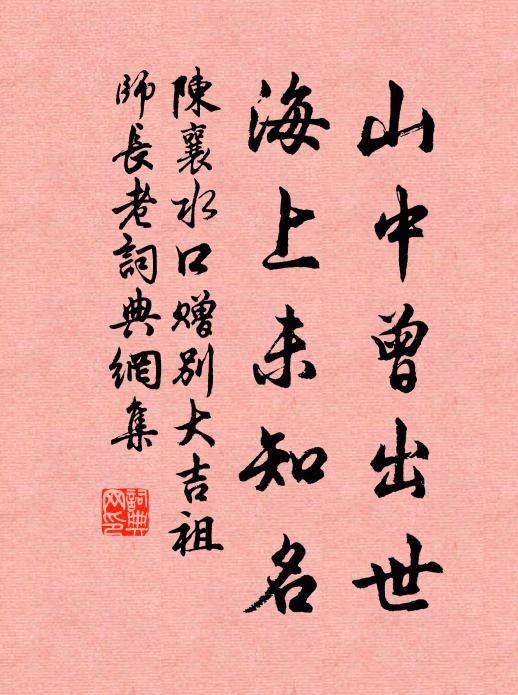 山中曾出世
海上未知名
陳襄水口赠别大吉祖
師長老詞典網集
詞典网印